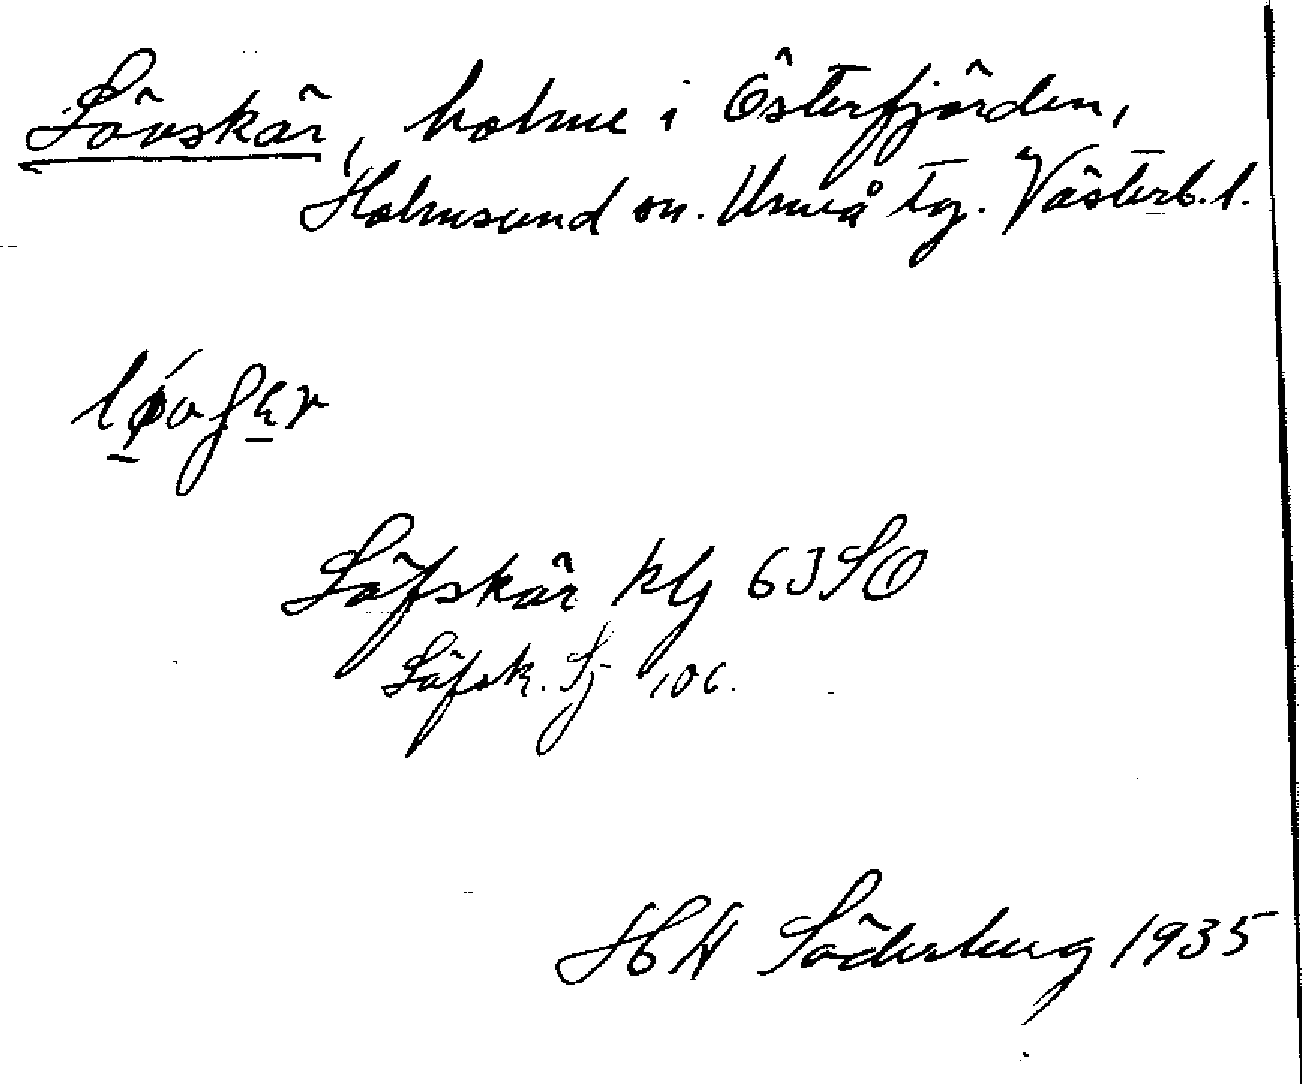 Lövskär, holme i Österfjärden,
Holmsund sn. Umeå tg. Västerb. l.
Löfskär klg 63 SO
Löfsk. Sj 106.
H Söderberg 1935